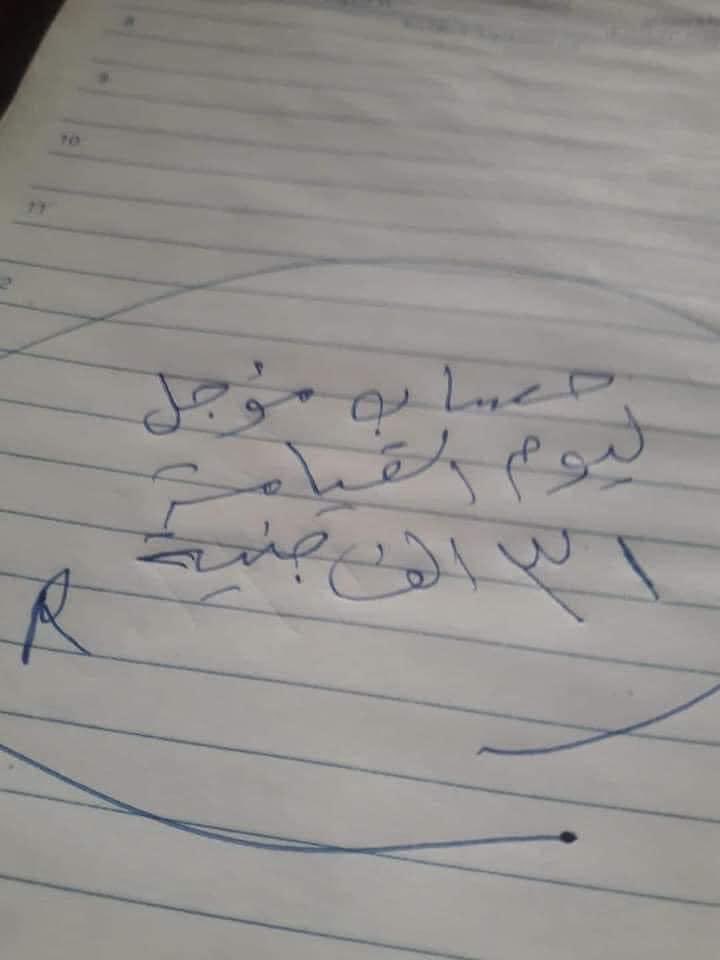 8
9
10
11
2
حساب مؤجل
ليوم القيامة
٣١ الف جنيه
R